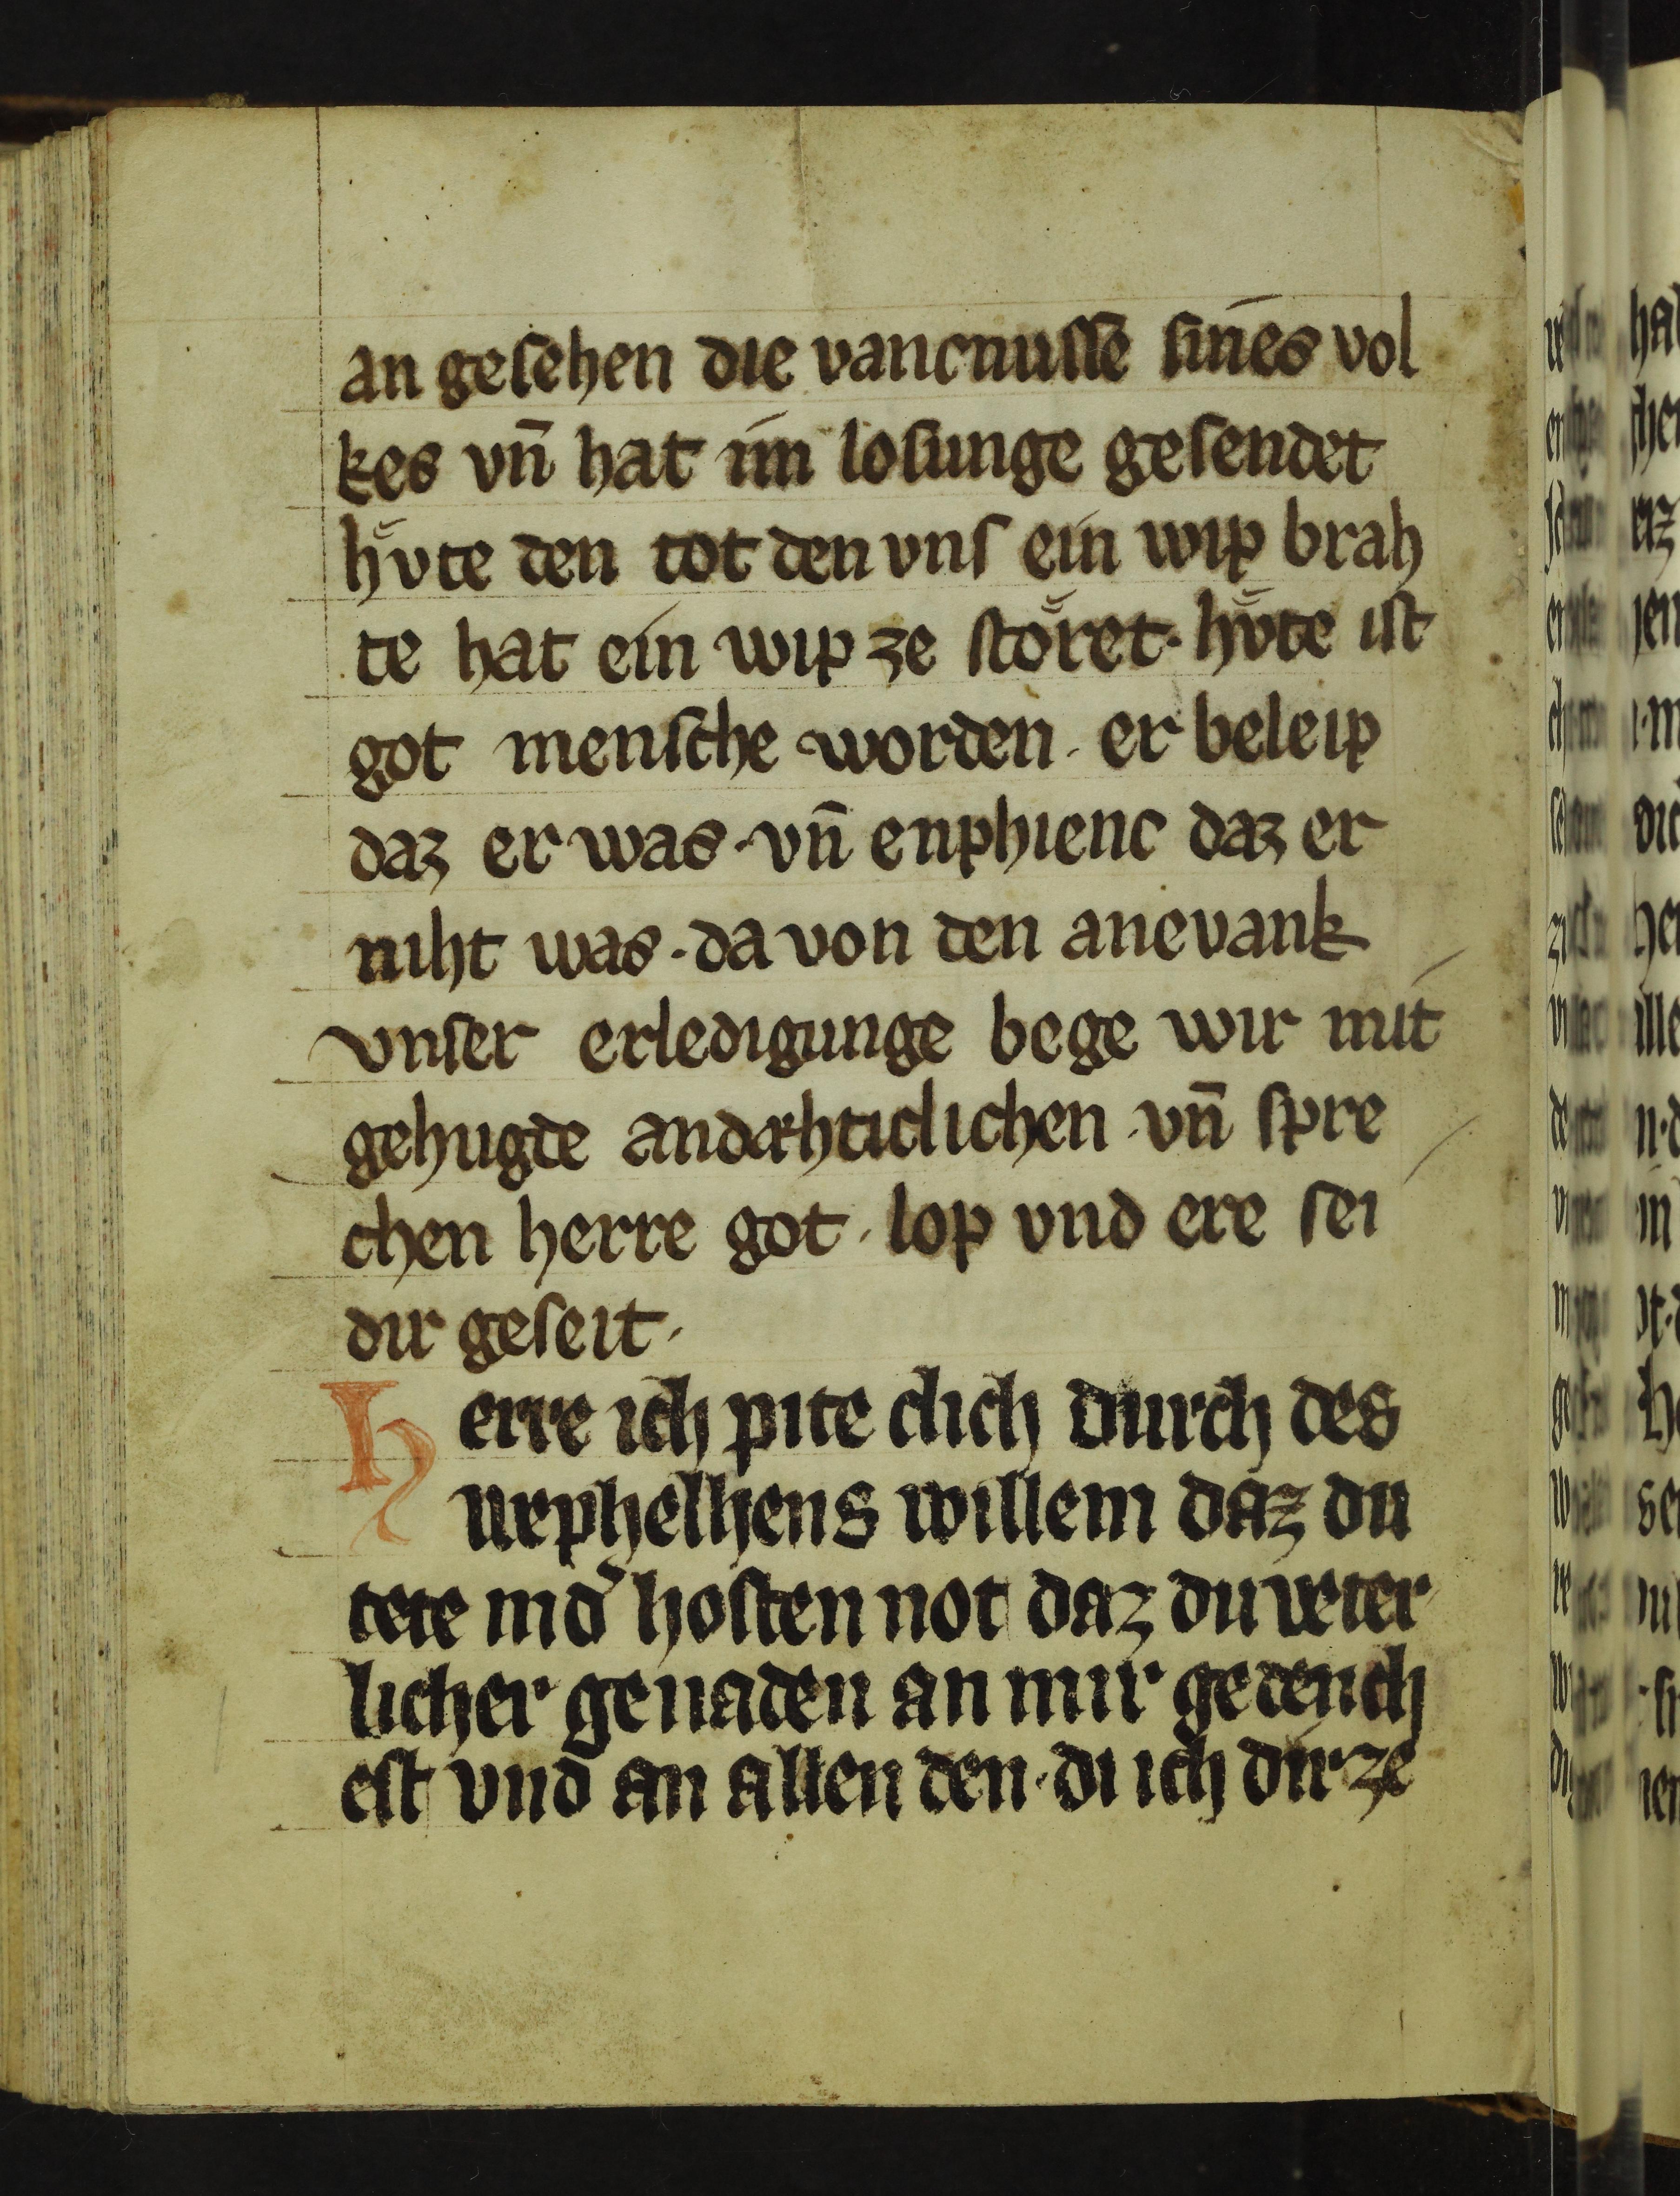 an gesehen die vancnusse̅ sines vol
kes vn̅ hat im losunge gesendet
hv̌te den tot den vns ein wip brah
te hat ein wip ze stǒret · hv̌te ist
got mensche worden · er beleip
daz er was · vn̅ enphienc daz er
niht was · da von den anevank
vnser erledigunge bege wir mit
gehugde andæhticlichen · vn̅ spre
chen herre got · lop vnd ere sei
dir geseit ·
Herre ich pite dich durch des
urphelhens willem daz du
tete in d͛ hosten not daz du veter
licher genaden an mir gedench
est vnd an allen den · di ich dir ze